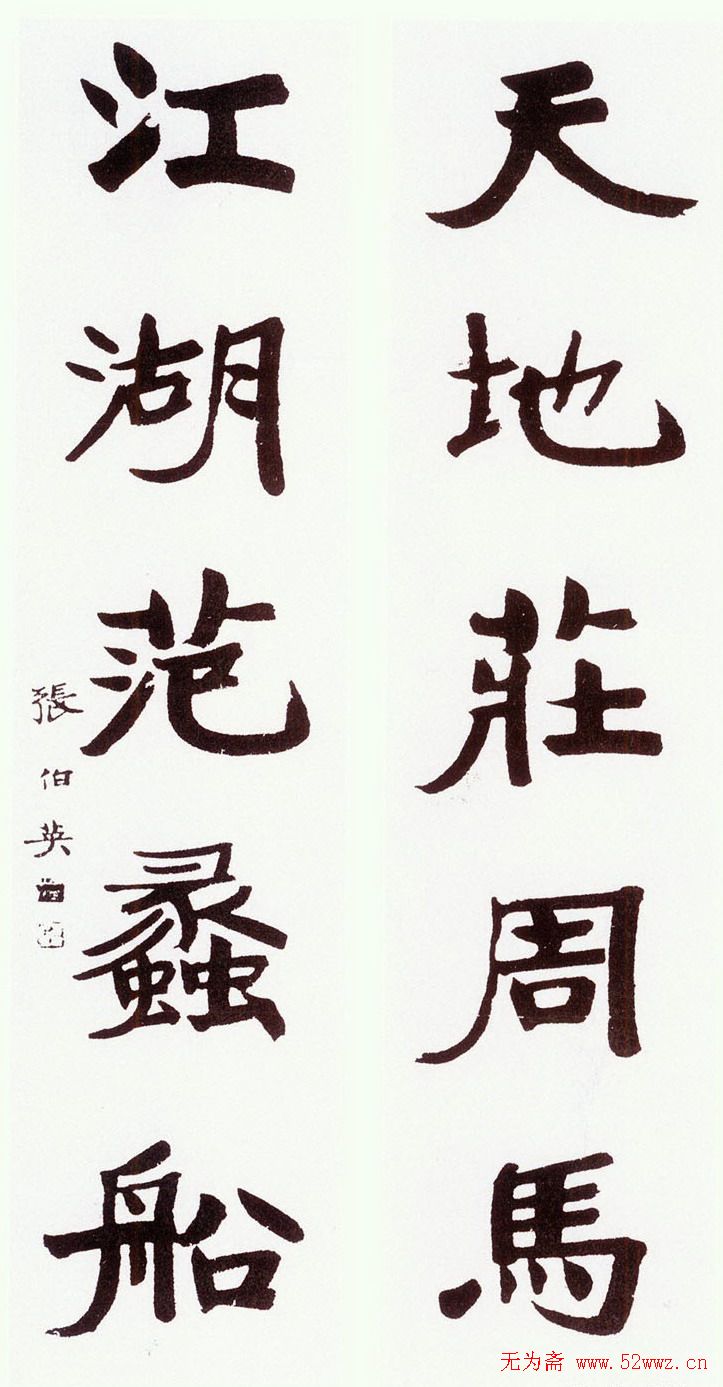 天地莊周馬
江湖范蠡船
張伯英
无为斋 www.52wwz.cn